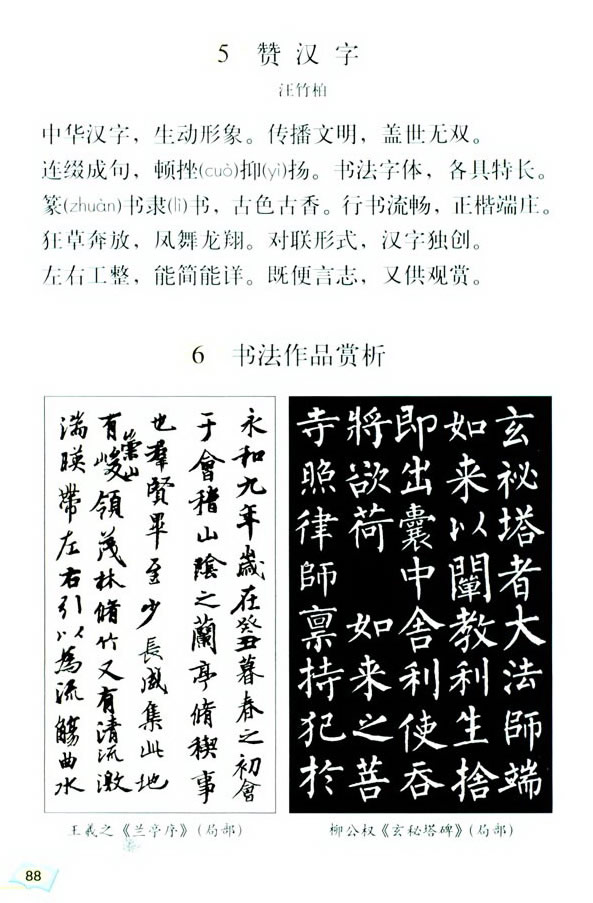 5 赞汉字
汪竹柏
中华汉字，生动形象。传播文明，盖世无双。
连缀成句，顿挫(cuò)抑(yì)扬。书法字体，各具特长。
篆(zhuàn)书隶(lì)书，古色古香。行书流畅，正楷端庄。
狂草奔放，凤舞龙翔。对联形式，汉字独创。
左右工整，能简能详。既便言志，又供观赏。
6 书法作品赏析
永和九年歲在癸丑暮春之初會
于會稽山陰之蘭亭脩稧事
也羣賢畢至少長咸集此地
有崇山峻領茂林脩竹又有清流激
湍暎帶左右引以為流觴曲水
王羲之《兰亭序》(局部)
玄祕塔者大法師端
如来以闡教利生捨
即出囊中舍利使吞
將欲荷 如来之菩
寺照律師禀持犯於
柳公权《玄秘塔碑》(局部)
88